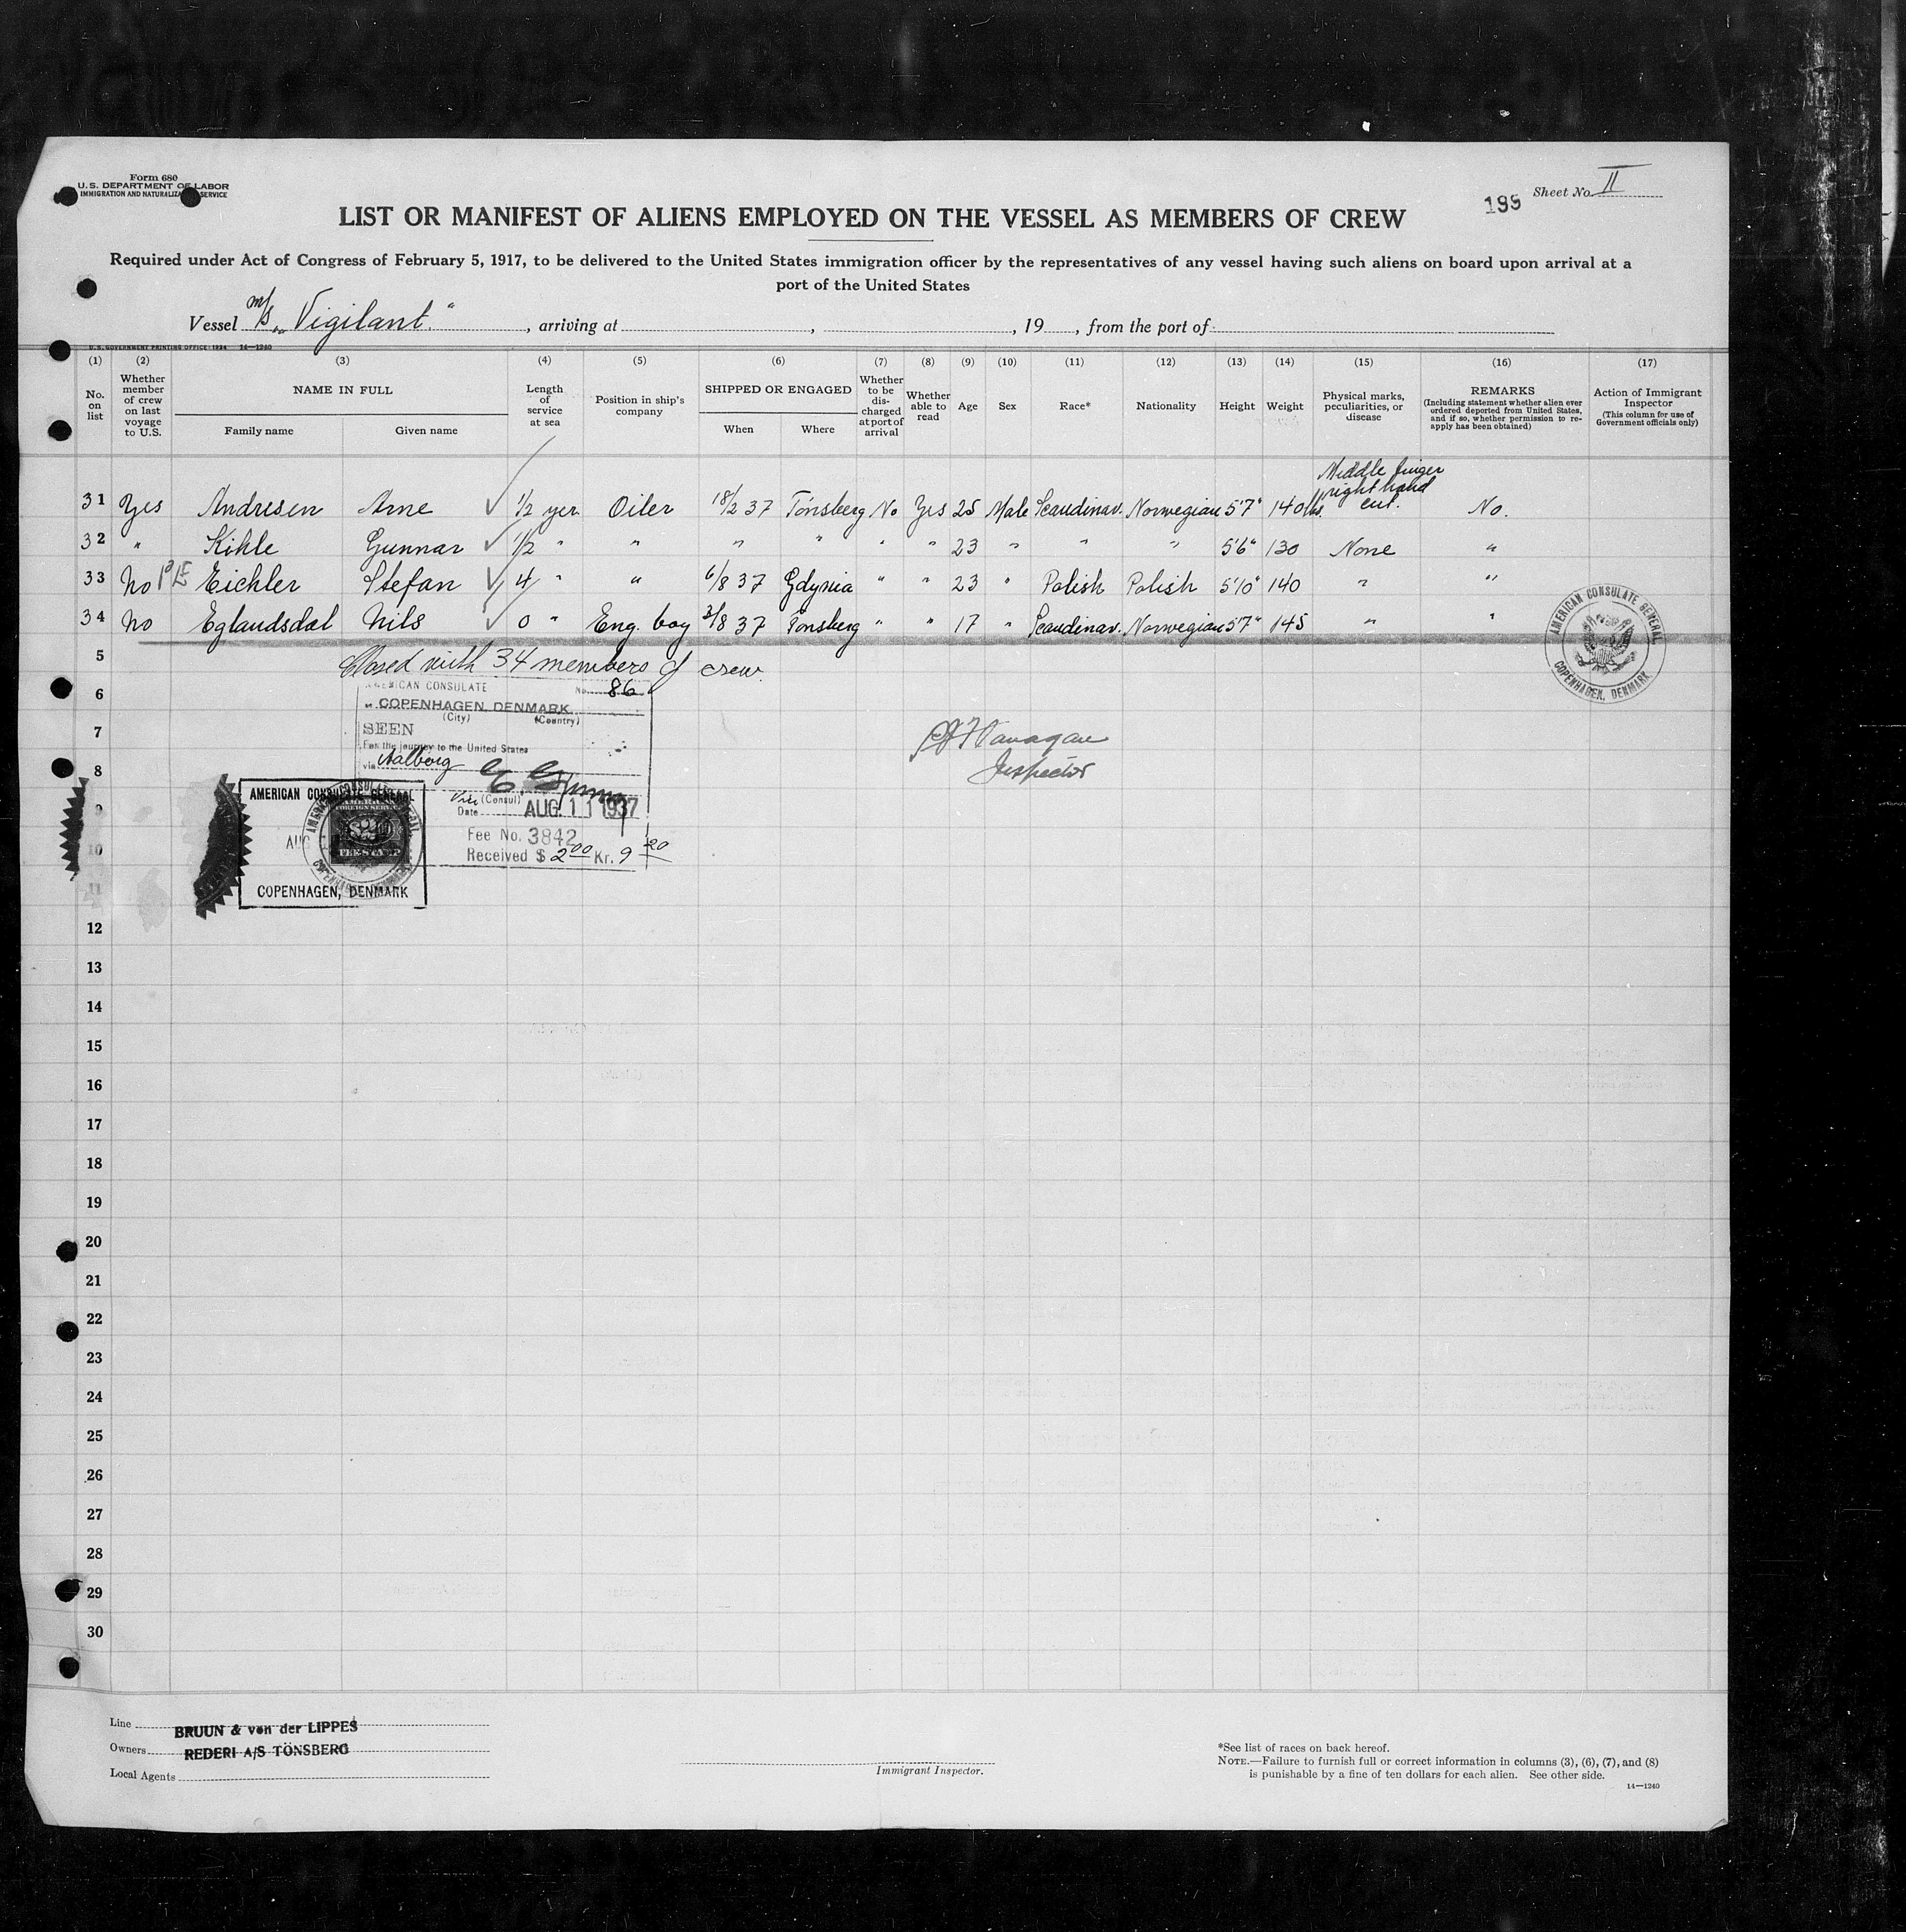 Form 680
U.S. DEPARTMENT OF LABOR
IMMIGRATION AND NATURALIZATION SERVICE
199 Sheet No. II
LIST OR MANIFEST OF ALIENS EMPLOYED ON THE VESSEL AS MEMBERS OF CREW
Required under Act of Congress of February 5, 1917, to be delivered to the United States immigration officer by the representatives of any vessel having such aliens on board upon arrival at a
port of the United States
Vessel m/s „Vigilant." , arriving at , , 19 , from the port of
U.S. GOVERNMENT PRINTING OFFICE: 1934 14—1240
(1) (2) (3) (4) (5) (6) (7) (8) (9) (10) (11) (12) (13) (14) (15) (16) (17)
No. on list
Whether member of crew on last voyage to U.S.
NAME IN FULL
Family name Given name
Length of service at sea
Position in ship's company
SHIPPED OR ENGAGED
When Where
Whether to be discharged at port of arrival
Whether able to read
Age
Sex
Race*
Nationality
Height
Weight
Physical marks, peculiarities, or disease
REMARKS
(Including statement whether alien ever ordered deported from United States, and if so, whether permission to re-apply has been obtained)
Action of Immigrant Inspector
(This column for use of Government officials only)
31 Yes Andresen Arne ✓ 1/2 yer Oiler 18/2 37 Tönsberg No Yes 25 Male Scandinav. Norwegian 5'7" 140 lbs. Middle finger right hand cut. No.
32 " Kihle Gunnar ✓ 1/2 " " " " " " 23 " " " 5'6" 130 None "
33 No Eichler Stefan ✓ 4 " " 6/8 37 Gdynia " " 23 " Polish Polish 5'10" 140 " "
34 No Eglandsdal Nils ✓ 0 " Eng. boy 3/8 37 Tönsberg " " 17 " Scandinav. Norwegian 5'7" 145 " "
AMERICAN CONSULATE GENERAL
COPENHAGEN, DENMARK
5
Closed with 34 members of crew.
6
AMERICAN CONSULATE No. 86
COPENHAGEN, DENMARK
(City) (Country)
7
SEEN
For the journey to the United States
via Aalborg
Flanagan
Inspector
8
Vice (Consul)
Date AUG 11 1937
Fee No. 3842
Received $ 2 00 Kr. 9 20
AMERICAN CONSULATE GENERAL
AUG
AMERICAN FOREIGN SERVICE
$2
FEE STAMP
COPENHAGEN, DENMARK
9
10
11
12
13
14
15
16
17
18
19
20
21
22
23
24
25
26
27
28
29
30
Line BRUUN & von der LIPPES
Owners REDERI A/S TÖNSBERG
Local Agents
Immigrant Inspector.
*See list of races on back hereof.
NOTE.—Failure to furnish full or correct information in columns (3), (6), (7), and (8)
is punishable by a fine of ten dollars for each alien. See other side.
14—1240